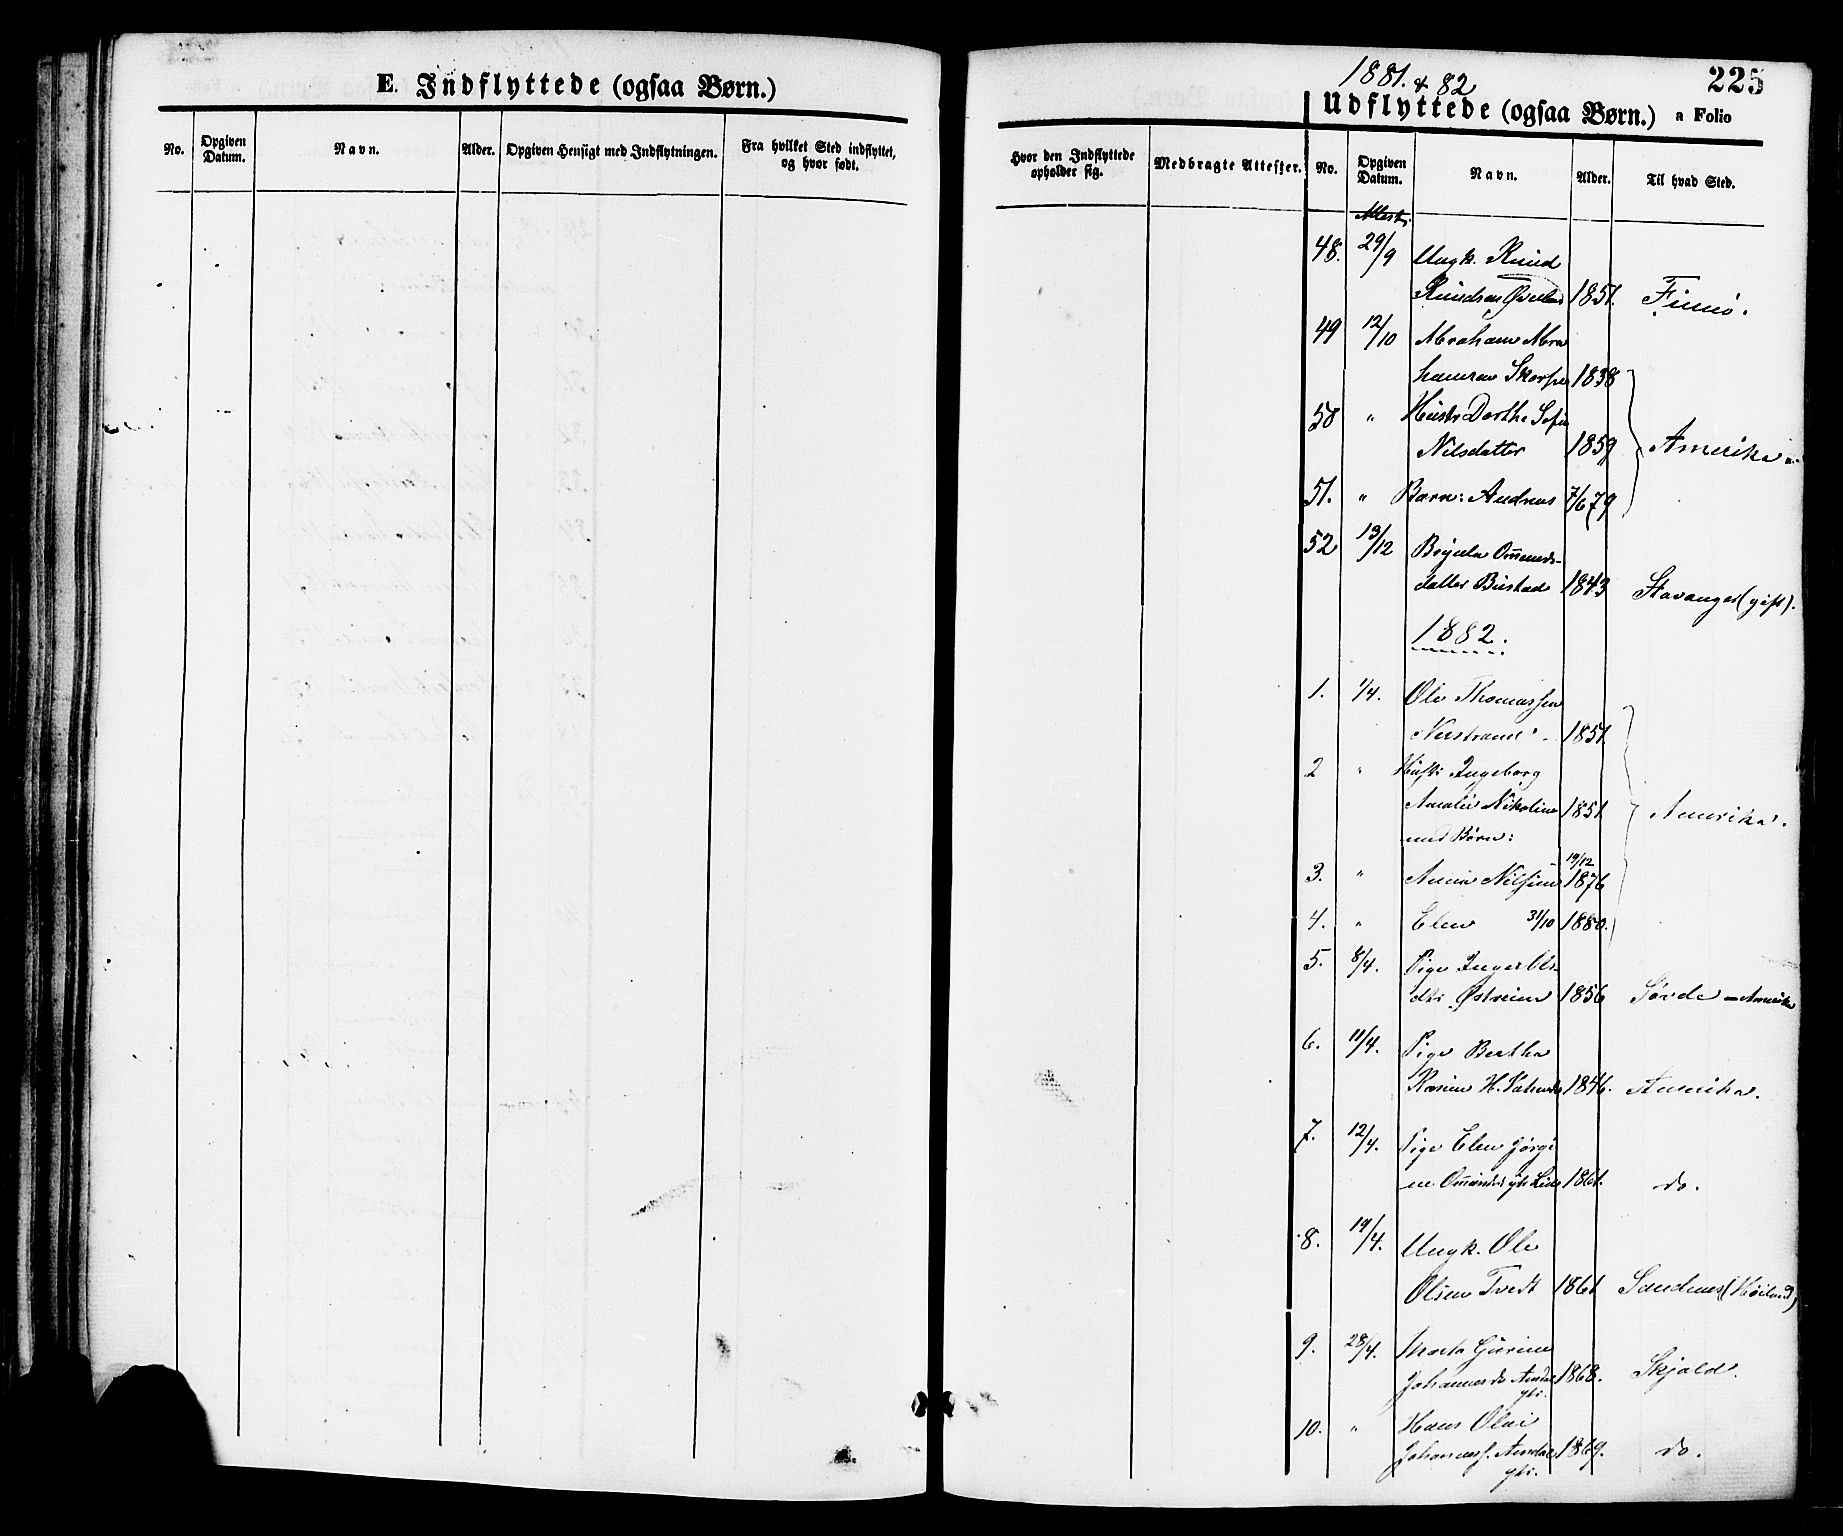 E. Indflyttede (ogsaa Børn.)
No.
Opgiven Datum.
Navn.
Alder.
Opgiven Hensigt med Indflytningen.
Fra hvilket Sted indflyttet, og hvor født.
1881. & 82
225
Udflyttede (ogsaa Børn.) a Folio
Hvor den Indflyttede opholder sig.
Medbragte Attester.
No.
Opgiven Datum.
Navn.
Alder.
Til hvad Sted.
Attest.
48. 29/9 Ungk. Knud
Knudsen 1851. Finnø.
49 12/10 Abraham Abra
hamsen 1838
50 " Hustr Dorthe Sofie
Nilsdatter 1859 Amerika
51. " Barn: Andreas 7/6 79
52 13/12
datter Bustad 1843 Stavanger (gift).
1882.
1. 1/4. Ole Thomassen
Nerstrand 1851.
2 " Hustr Ingeborg
Amalie Nikoline 1851. Amerika.
med Børn:
3. " Anna 19/12 1876
4. " Elen 31/10 1880.
5. 8/4. Pige Inger
dtr Østreim 1856 Amerika
6. 11/4. Pige Bertha
H. 1846. Amerika.
7. 12/4. Pige Elen Jørgi
ne 1861. do.
8. 19/4. Ungk. Ole
Olsen Tvedt 1861 Sandnes (Høiland)
9. 28/4. Marta Gurine
Johannesd. 1868. Skjold.
10. " Hans Olai
Johanness. 1869. do.